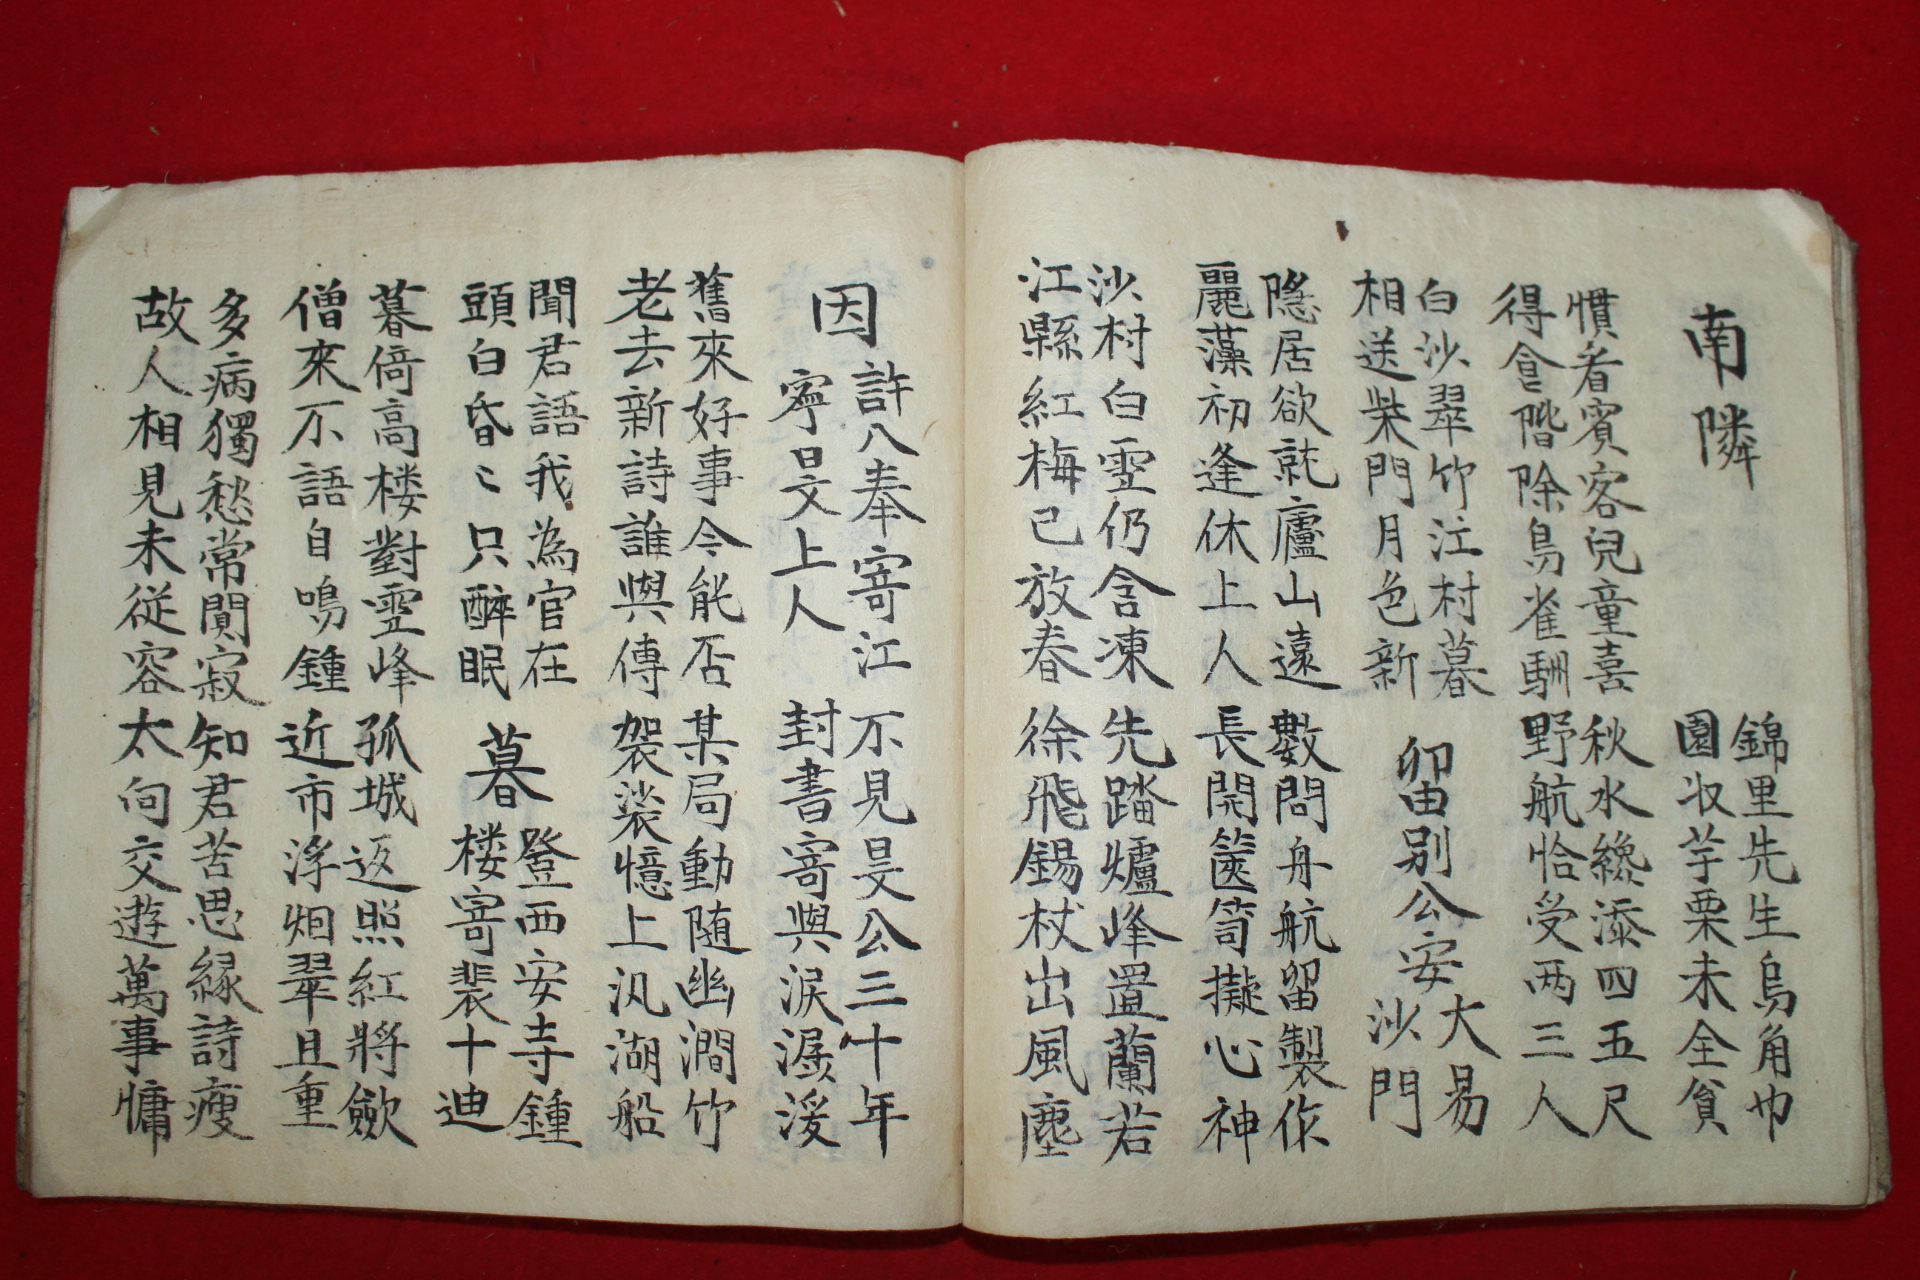 南隣
錦里先生烏角巾
園収芋栗未全貧
慣看賓客兒童喜
得食階除鳥雀馴
秋水纔添四五尺
野航恰受两三人
白沙翠竹江村暮
相送柴門月色新
留別公安
大易
沙門
隱居欲就廬山遠
麗藻初逢休上人
數問舟航留製作
長開篋笥擬心神
沙村白雪仍含凍
江縣紅梅已放春
先踏爐峰置蘭若
徐飛錫杖出風塵
因
許八奉寄江
寧旻上人
不見旻公三十年
封書寄與淚潺湲
舊來好事今能否
老去新詩誰與傳
某局動随幽澗竹
袈裟憶上汎湖船
聞君語我為官在
頭白昏〻只醉眠
暮
登西安寺鍾
楼寄裴十迪
暮倚高楼對雪峰
僧來不語自鳴鍾
孤城返照紅將歛
近市浮烟翠且重
多病獨愁常闃寂
故人相見未從容
知君苦思緣詩瘦
太向交遊萬事慵